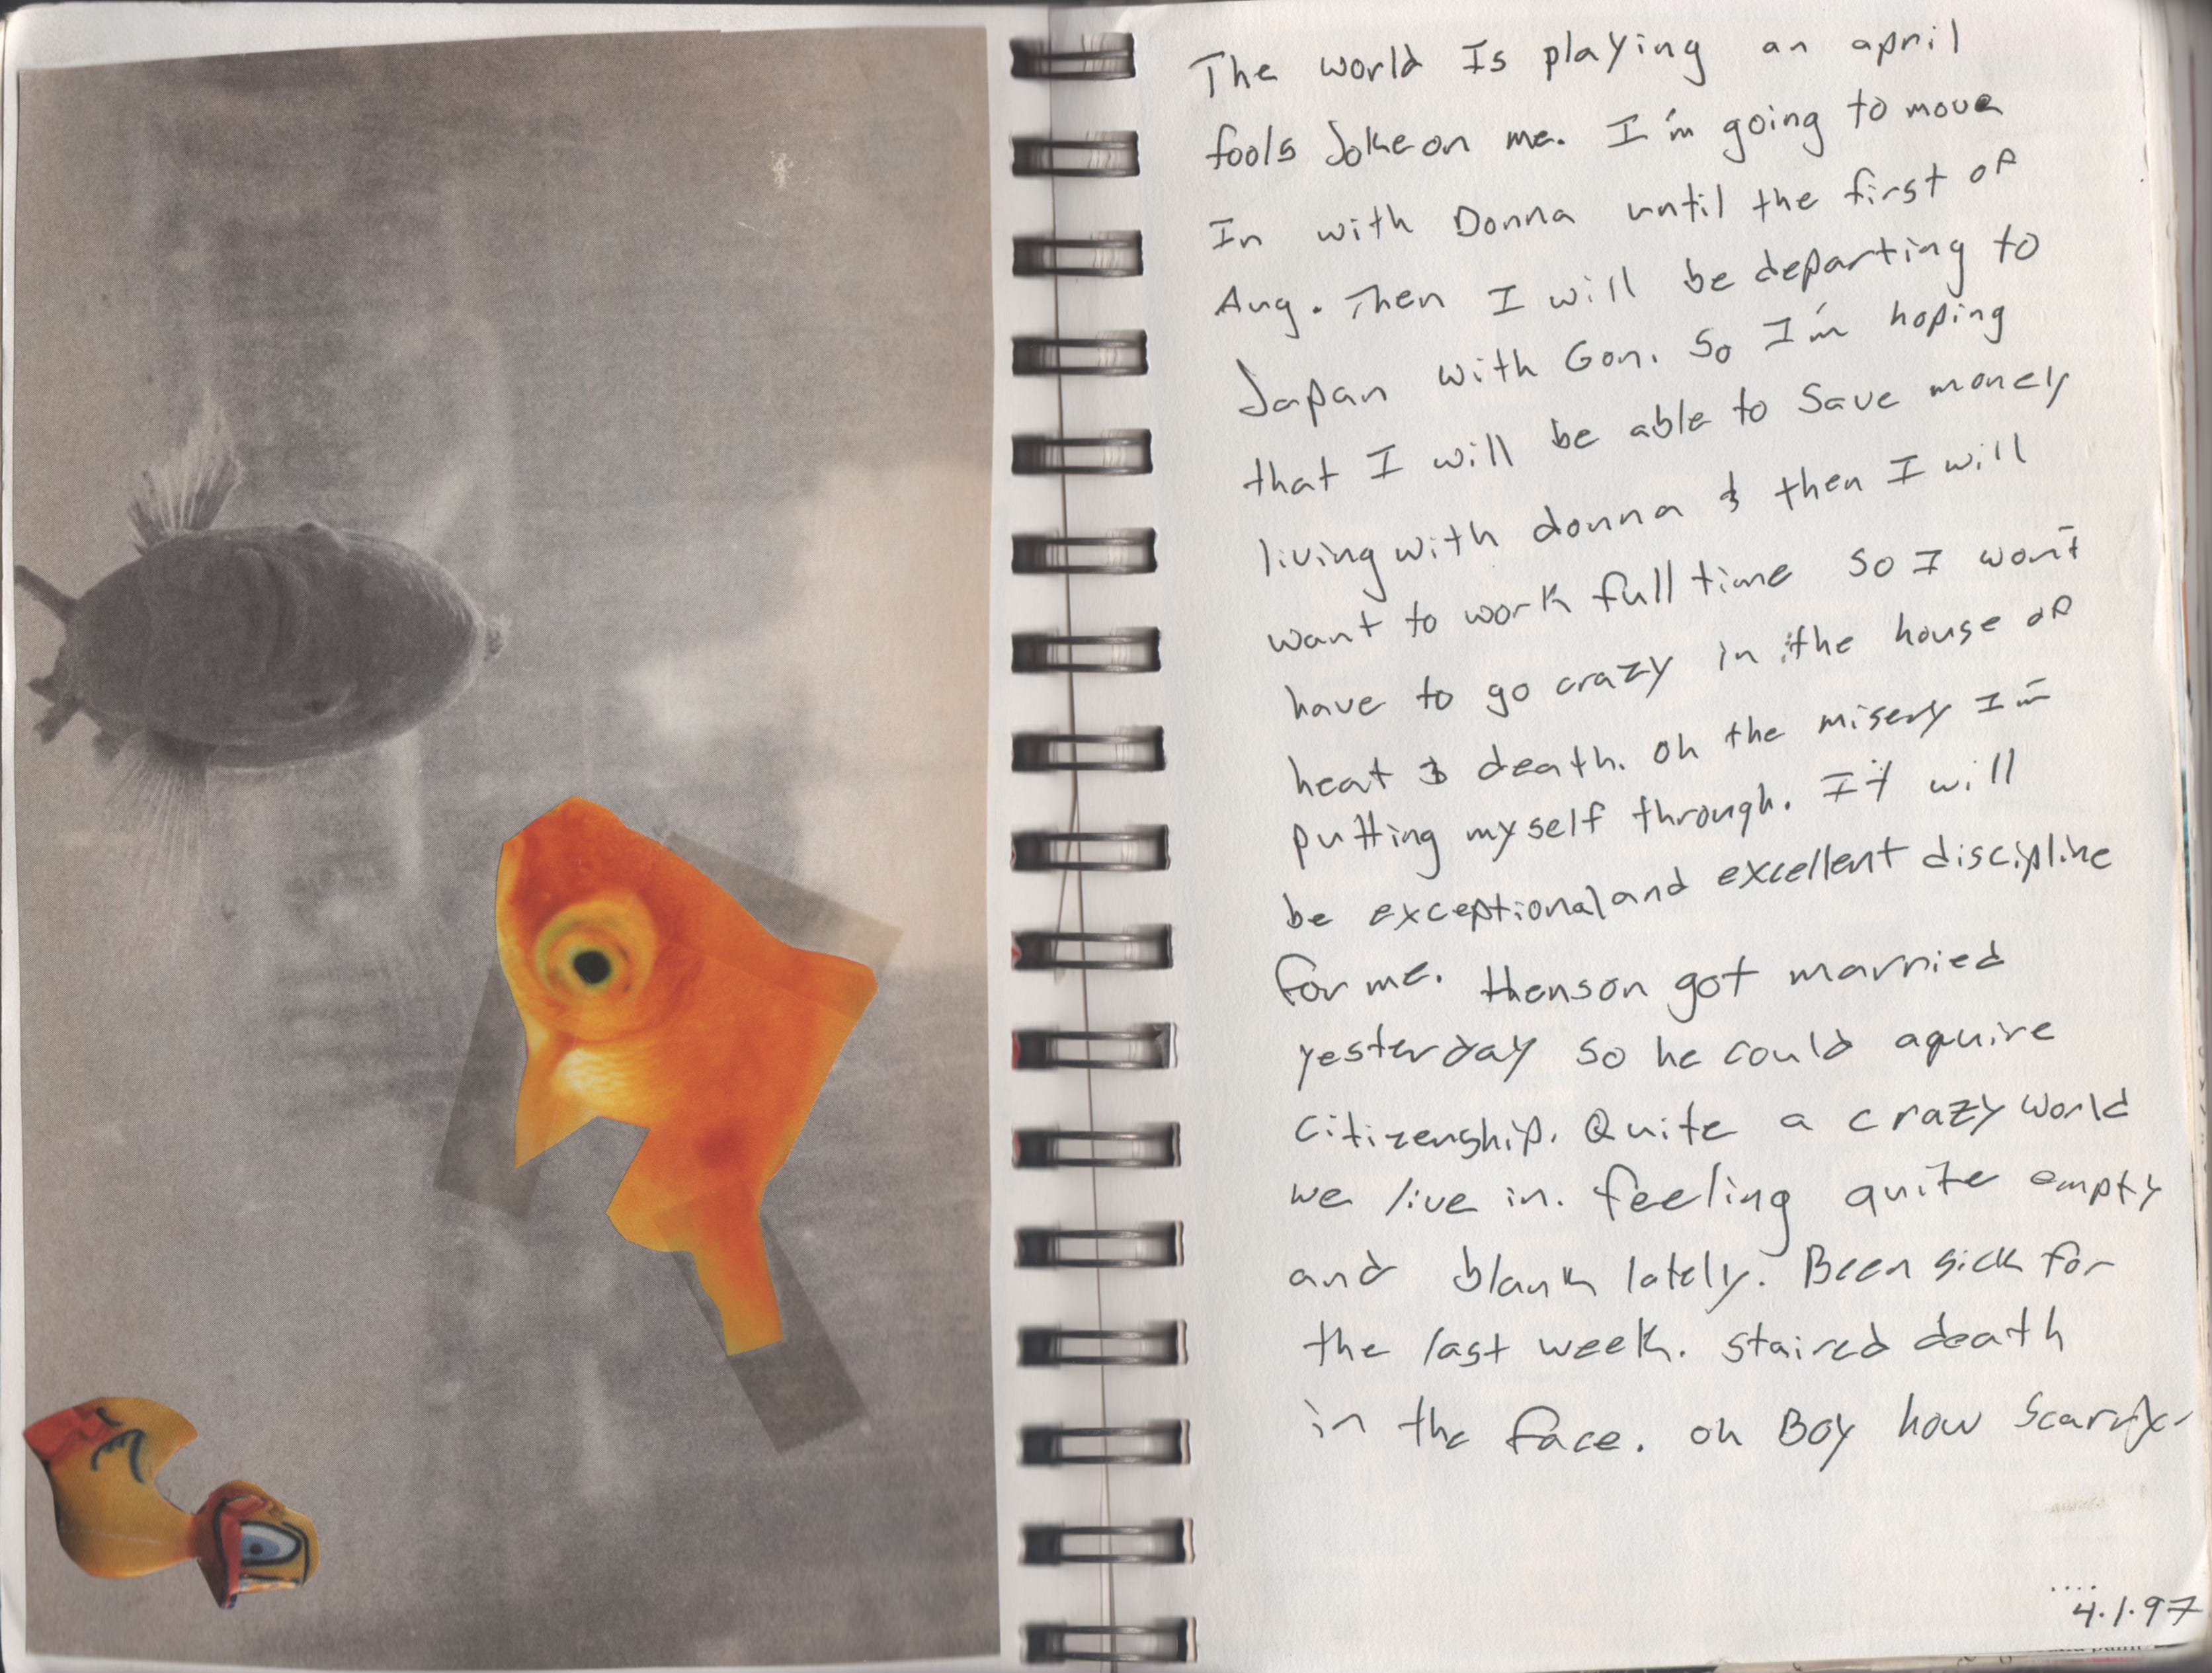 The world Is playing an april
fools Joke on me. I'm going to move
In with Donna until the first of
Aug. Then I will be departing to
Japan with Gon. So I'm hoping
that I will be able to save money
living with donna & then I will
want to work full time so I won't
have to go crazy in the house of
heat & death. oh the misery I'm
putting myself through. It will
be exceptional and excellent discipline
for me. Henson got married
yesterday so he could aquire
citizenship. Quite a crazy world
we live in. feeling quite empty
and blank lately. Been sick for
the last week. staired death
in the face. oh Boy how
4.1.97